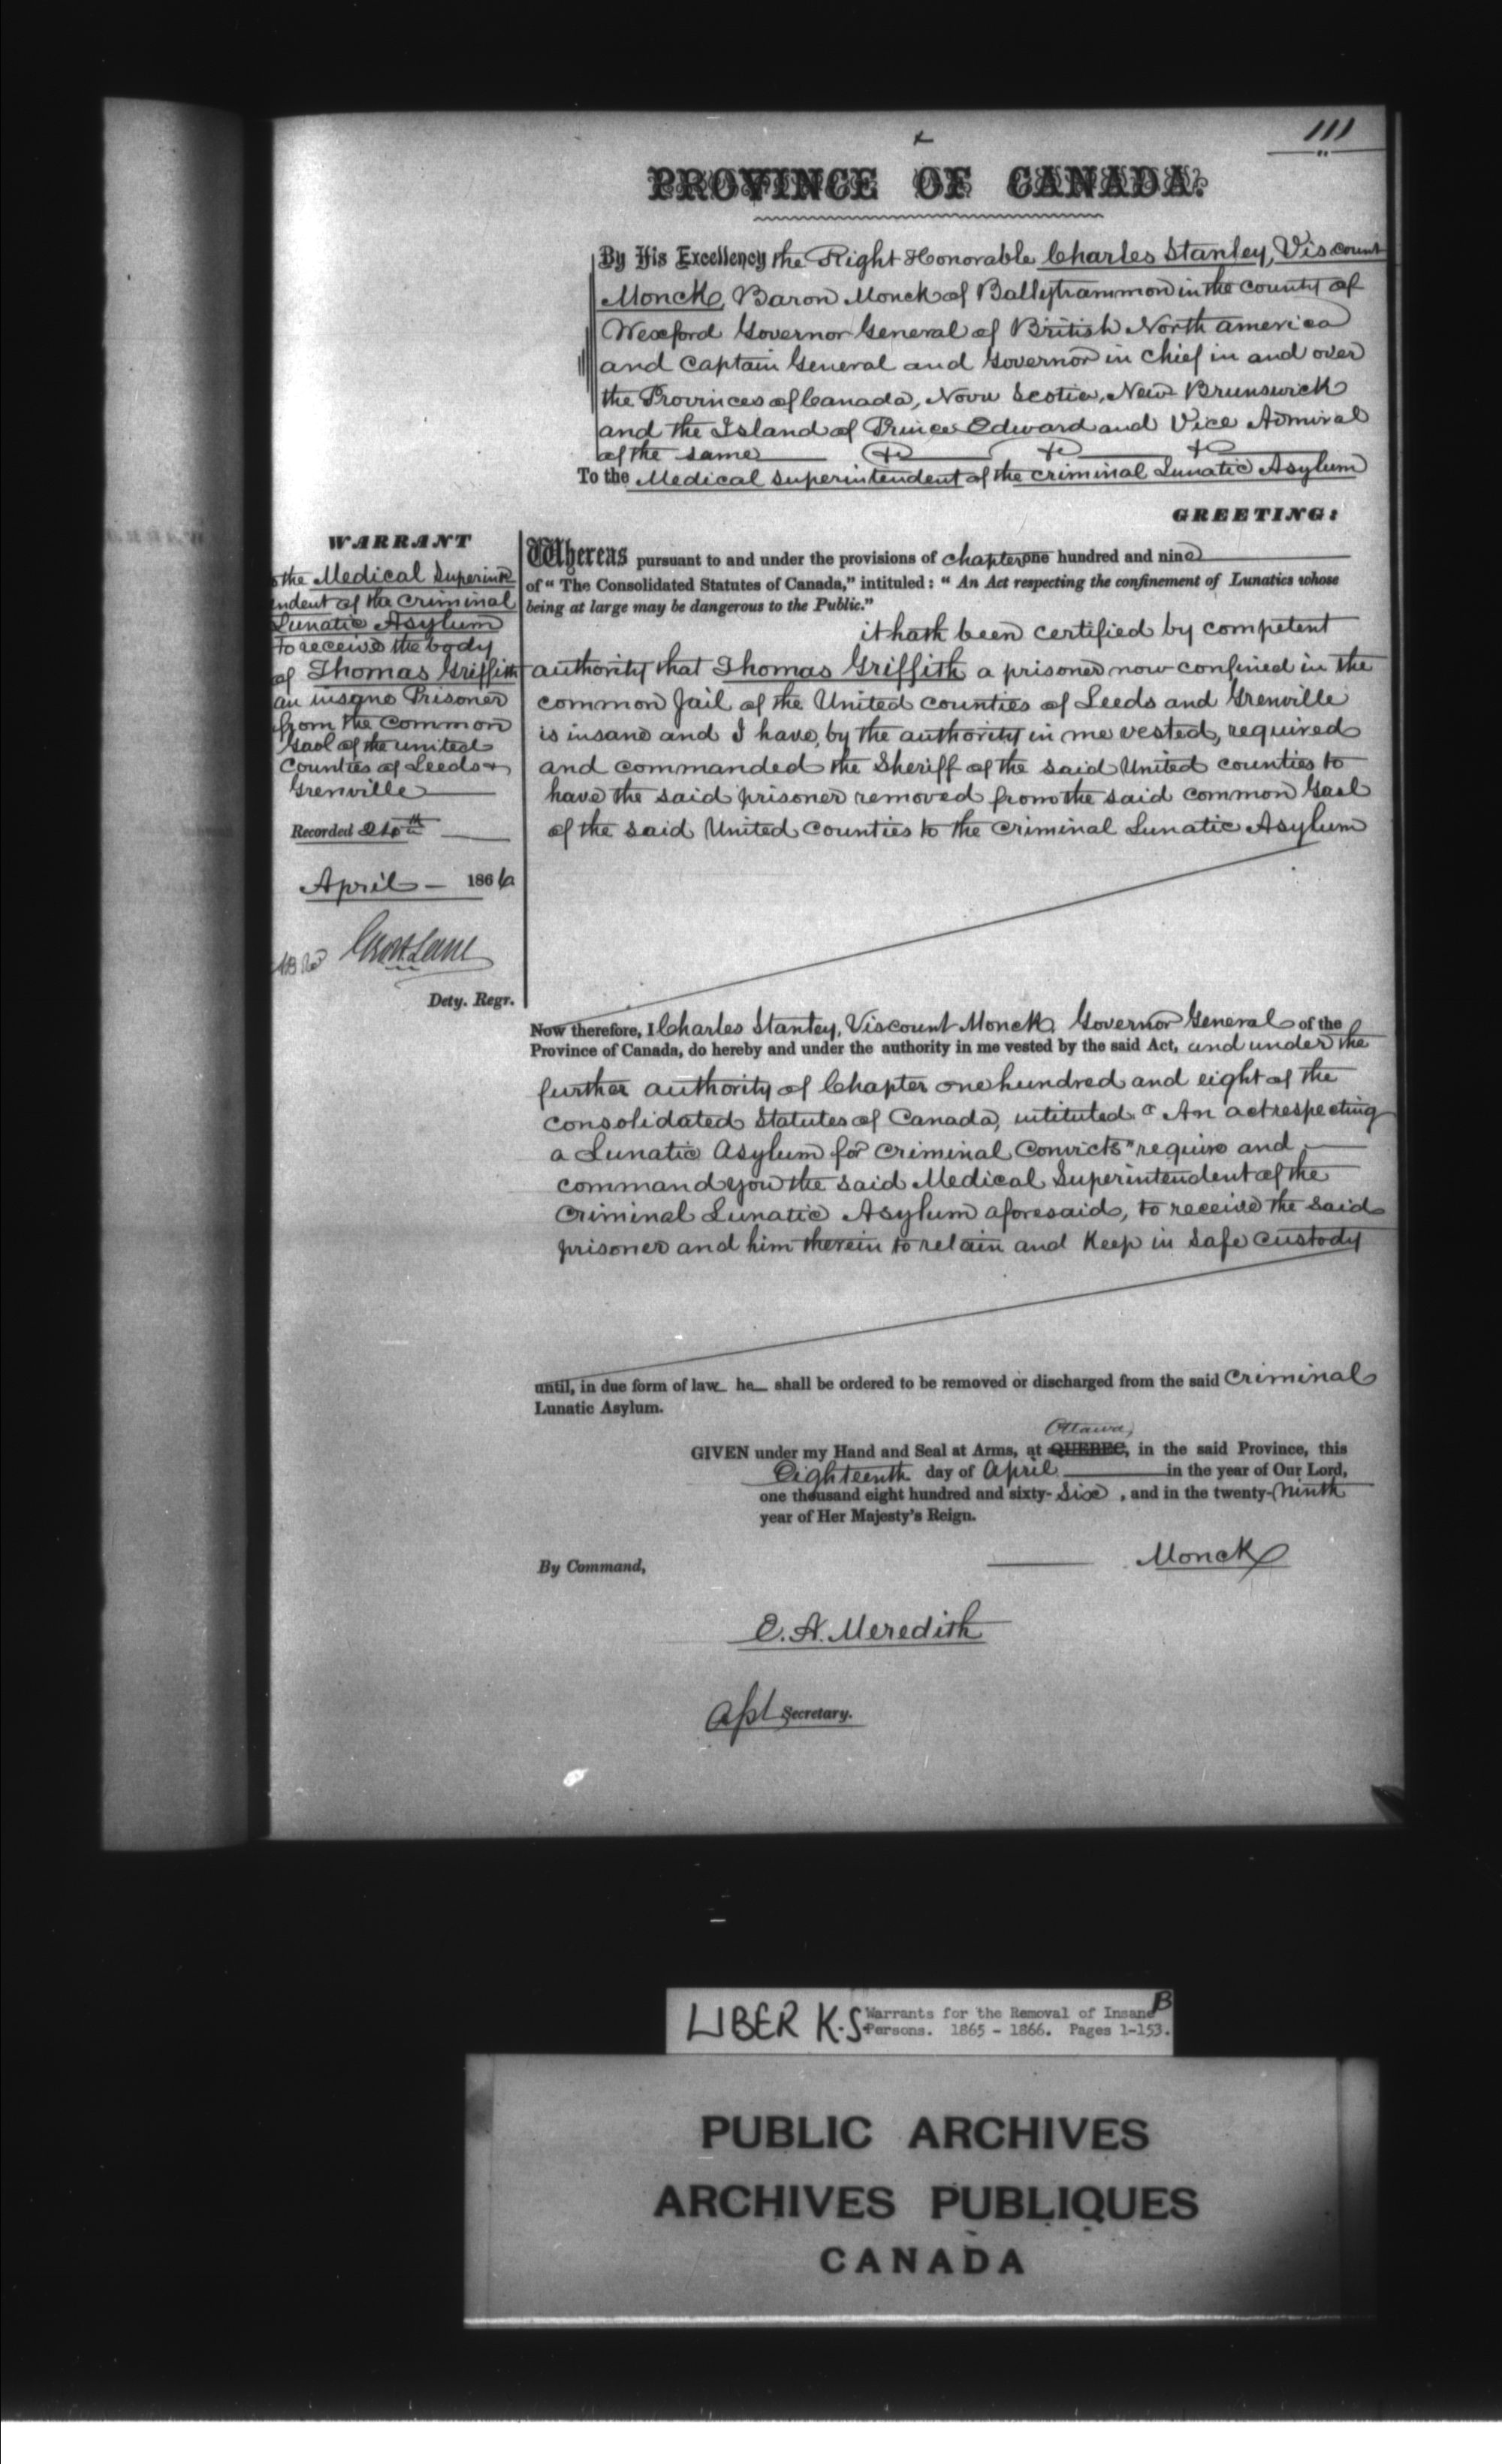 111
PROVINCE OF CANADA.
By His Excellency the Right Honorable Charles Stanley, Viscount
Monck, Baron Monck of Ballytrammon in the County of
Wexford Governor General of British North america
and Captain General and Governor in Chief in and over
the Provinces of Canada, Nova Scotia, New Brunswick
and the Island of Prince Edward and Vice Admiral
of the same &c &c &c
To the Medical Superintendent of the Criminal Lunatic Asylum
GREETING:
WARRANT
the Medical Superinte
ndent of the Criminal
Lunatic Asylum
to receive the body
of Thomas Griffith
an insane Prisoner
from the Common
Gaol of the united
Counties of Leeds &
Grenville
Recorded
April 1866
Dety. Regr.
Whereas pursuant to and under the provisions of chapter one hundred and nine
of "The Consolidated Statutes of Canada," intituled: "An Act respecting the confinement of Lunatics whose
being at large may be dangerous to the Public."
it hath been certified by competent
authority that Thomas Griffith a prisoner now confined in the
common Jail of the United counties of Leeds and Grenville
is insane and I have, by the authority in me vested, required
and commanded the Sheriff of the said United counties to
have the said prisoner removed from the said common Gaol
of the said United Counties to the Criminal Lunatic Asylum
Now therefore, I Charles Stanley, Viscount Monck, Governor General of the
Province of Canada, do hereby and under the authority in me vested by the said Act, and under the
further authority of Chapter one hundred and eight of the
Consolidated Statutes of Canada, intituled "An act respecting
a Lunatic Asylum for Criminal Convicts" require and
command you the said Medical Superintendent of the
Criminal Lunatic Asylum aforesaid, to receive the said
prisoner and him therein to retain and Keep in Safe custody
until, in due form of law he shall be ordered to be removed or discharged from the said Criminal
Lunatic Asylum.
Ottawa,
GIVEN under my Hand and Seal at Arms, at QUEBEC, in the said Province, this
Eighteenth day of April in the year of Our Lord,
one thousand eight hundred and sixty-Six, and in the twenty-ninth
year of Her Majesty's Reign.
Monck
By Command,
E. A. Meredith
Asst Secretary.
LIBER K.S. Warrants for the Removal of Insane B
Persons. 1865 - 1866. Pages 1-153.
PUBLIC ARCHIVES
ARCHIVES PUBLIQUES
CANADA